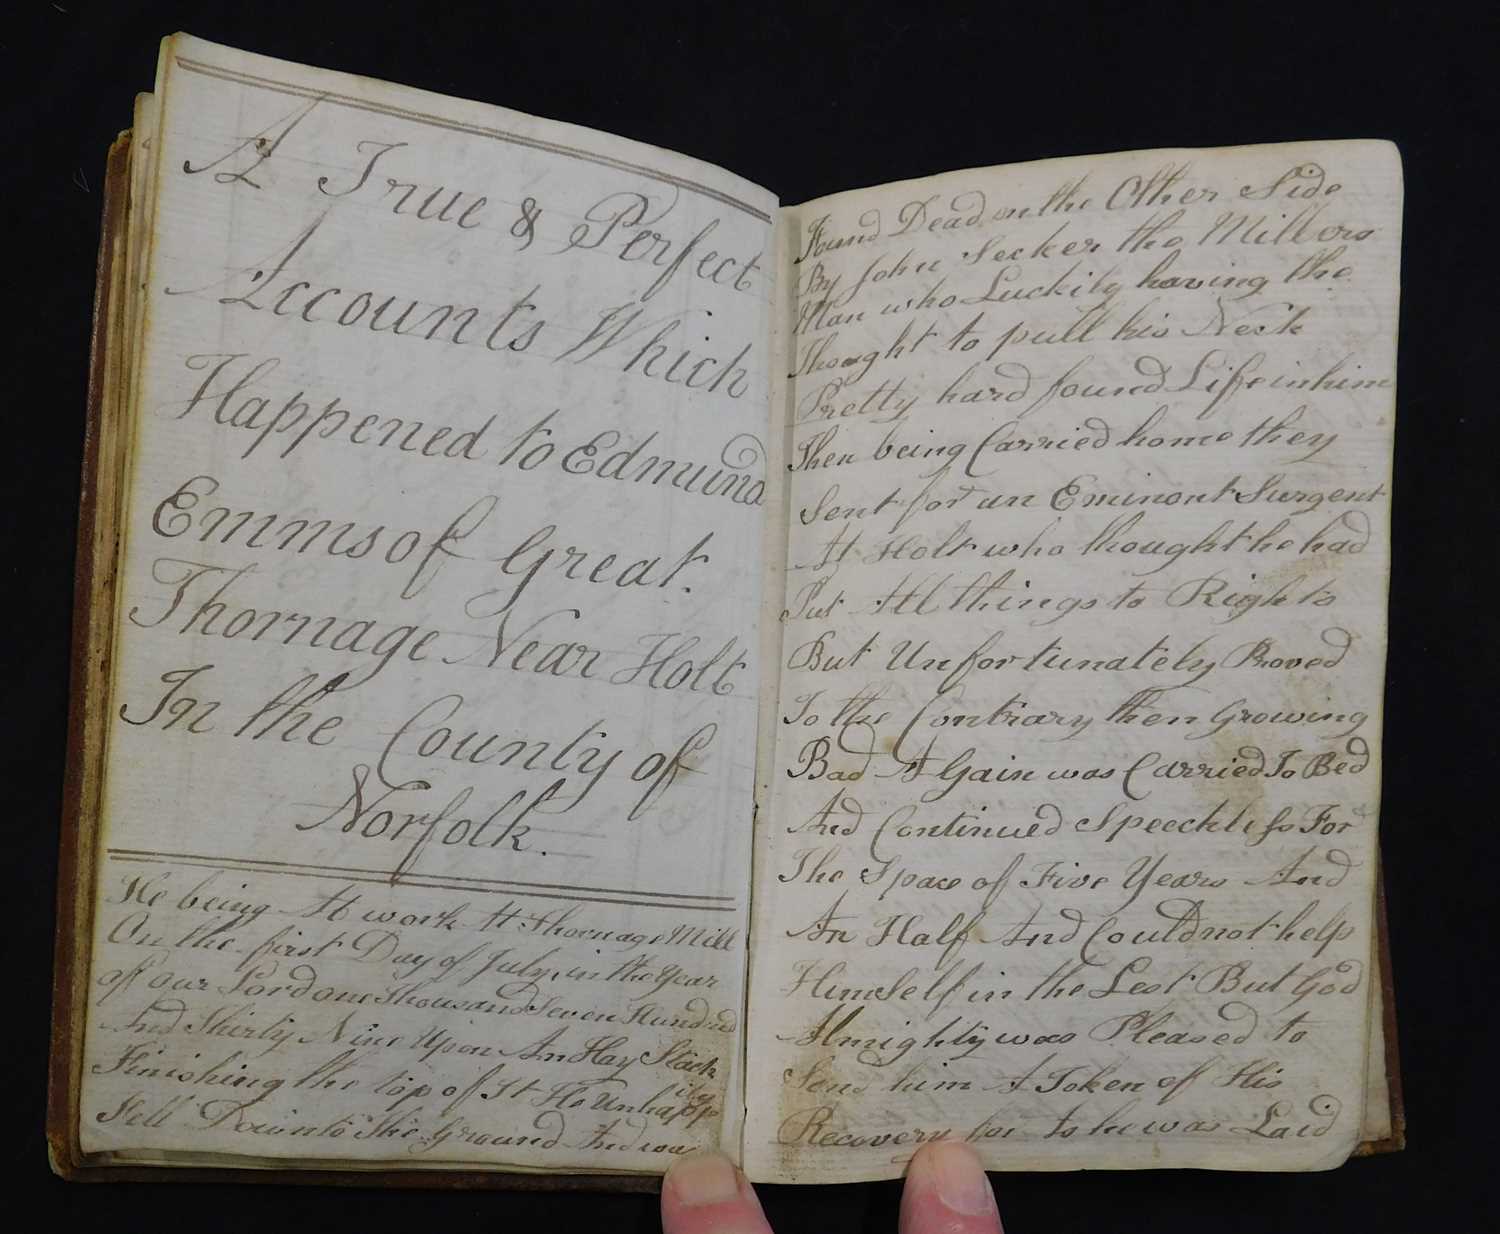 A True & Perfect
Accounts Which
Happened to Edmund
Emms of Great
Thornage Near Holt
In the County of
Norfolk.
He being At work At Thornage Mill
On the first Day of July, in the Year
of our Lord one Thousand Seven Hundred
And Thirty Nine Upon An Hay Stack
Finishing the top of It He Unhappily
Fell Down to The Ground And was
Found Dead on the Other Side
By John Secker the Millers
Man who Luckily having the
Thought to pull his Neck
Pretty hard found Life in him
Then being Carried home they
Sent for an Eminont Surgent
At Holt who thought he had
Put All things to Rights
But Unfortunately Proved
To the Contrary then Growing
Bad A Gain was Carried To Bed
And Continued Speechless For
The Space of Five Years And
An Half And Could not help
HimSelf in the Lest But God
Almighty was Pleased to
Send him A Token of His
Recovery for to he was Laid